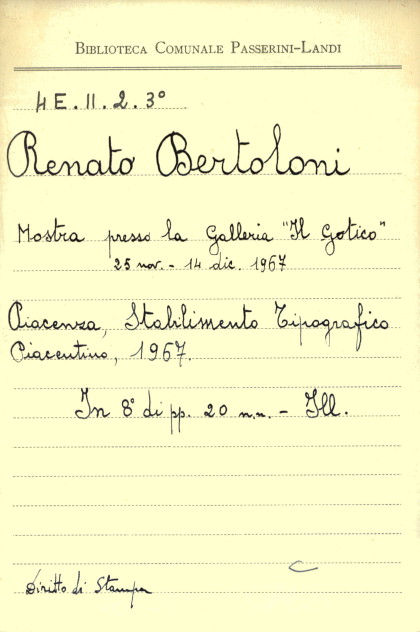 BIBLIOTECA COMUNALE PASSERINI-LANDI
4 E. II. 2. 3°
Renato Bertoloni
Mostra presso la Galleria "Il Gotico"
25 nov. - 14 dic. 1967
Piacenza, Stabilimento Tipografico
Piacentino, 1967.
In 8° di pp. 20 n.n. - Ill.
Diritto di Stampa